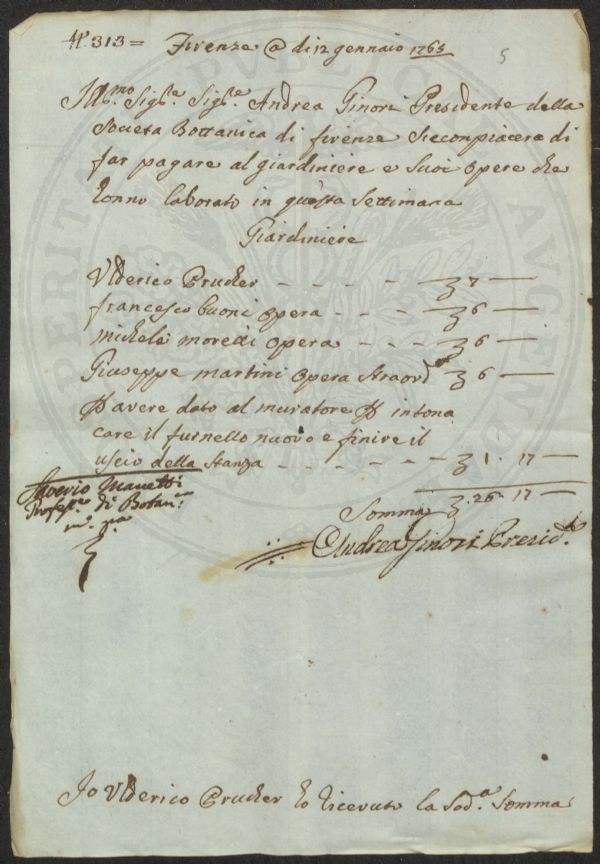 N. 313 = Firenze @ di 12 gennaio 1763
5
Ill:mo Sig:re Sig:re Andrea Ginori Presidente della
Societa Bottanica di firenze Seconpiacera di
far pagare al giardiniere e Suoi Opere che
hanno laborato in questa Settimana
Giardiniere
Vlderico Prucker - - - - - 7
francesco buoni Opera - - - 6
michele moredi Opera - - - 6
Giuseppe martini Opera Straord 6
P avere dato al muratore P intona
care il furnello nuovo e finire il
uscio della Stanza - - - - - 1. 17
Somma 26. 17
Saverio Manetti
Profess.e di Botan.
m. pa.
Andrea Ginori Presid.e
Io Vlderico Prucker ho ricevuto la Sod.a Somma
PERITIA PVBLICAE AVGENDAE